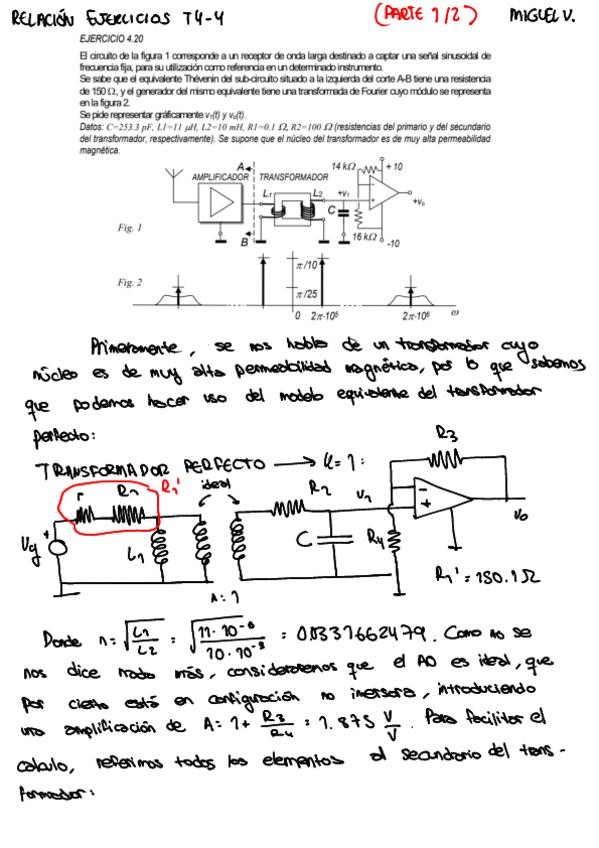 RELACIÓN EJERCICIOS T4-4 (PARTE 1/2) MIGUEL V.
EJERCICIO 4.20
El circuito de la figura 1 corresponde a un receptor de onda larga destinado a captar una señal sinusoidal de
frecuencia fija, para su utilización como referencia en un determinado instrumento.
Se sabe que el equivalente Thévenin del sub-circuito situado a la izquierda del corte A-B tiene una resistencia
de 150 Ω, y el generador del mismo equivalente tiene una transformada de Fourier cuyo módulo se representa
en la figura 2.
Se pide representar gráficamente v₁(t) y vₒ(t).
Datos: C=253.3 pF, L1=11 µH, L2=10 mH, R1=0.1 Ω, R2=100 Ω (resistencias del primario y del secundario
del transformador, respectivamente). Se supone que el núcleo del transformador es de muy alta permeabilidad
magnética.
A 14 kΩ + 10
AMPLIFICADOR TRANSFORMADOR
L₁ L₂ +v₁
C +vₒ
Fig. 1
B 16 kΩ -10
π/10
Fig. 2
π/25
0 2π·10⁵ 2π·10⁶ ω
Primeramente, se nos habla de un transformador cuyo
núcleo es de muy alta permeabilidad magnética, por lo que sabemos
que podemos hacer uso del modelo equivalente del transformador
perfecto:
TRANSFORMADOR PERFECTO → K=1:
R3
r R1 R1' ideal R2 V1
Vg L1 C R4 Vo
n:1 R1' = 150.1Ω
Donde n= √(L1/L2) = √(11·10⁻⁶/10·10⁻³) = 0.0331662479. Como no se
nos dice nada más, consideraremos que el AO es ideal, que
por cierto está en configuración no inversora, introduciendo
una amplificación de A= 1+ R3/R4 = 1.875 V/V. Para facilitar el
calculo, referimos todos los elementos al secundario del trans-
formador: